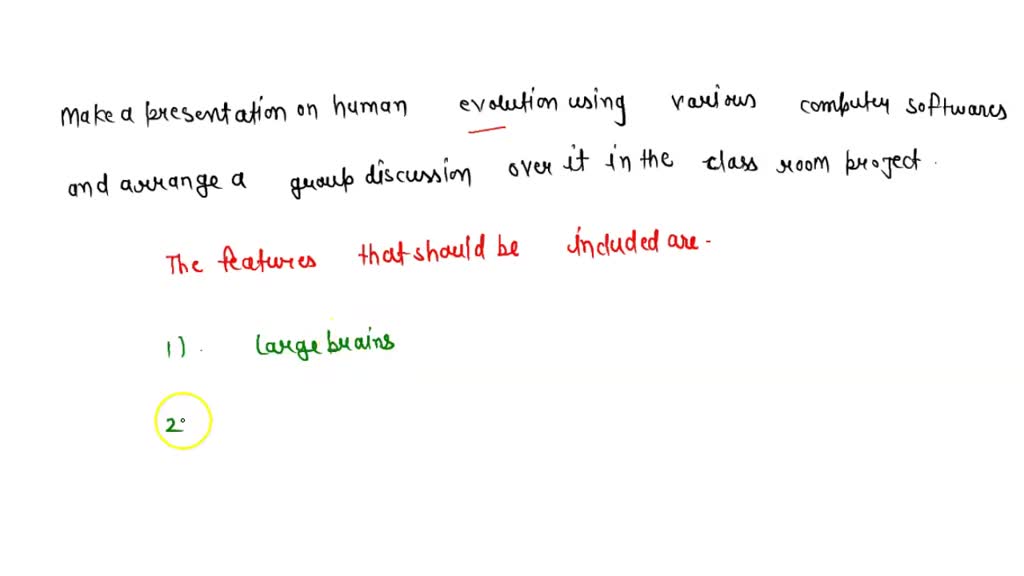 Make a presentation on human evolution using various computer softwares
and arrange a group discussion over it in the class room project.
The features that should be included are.
1). Large brains
2.